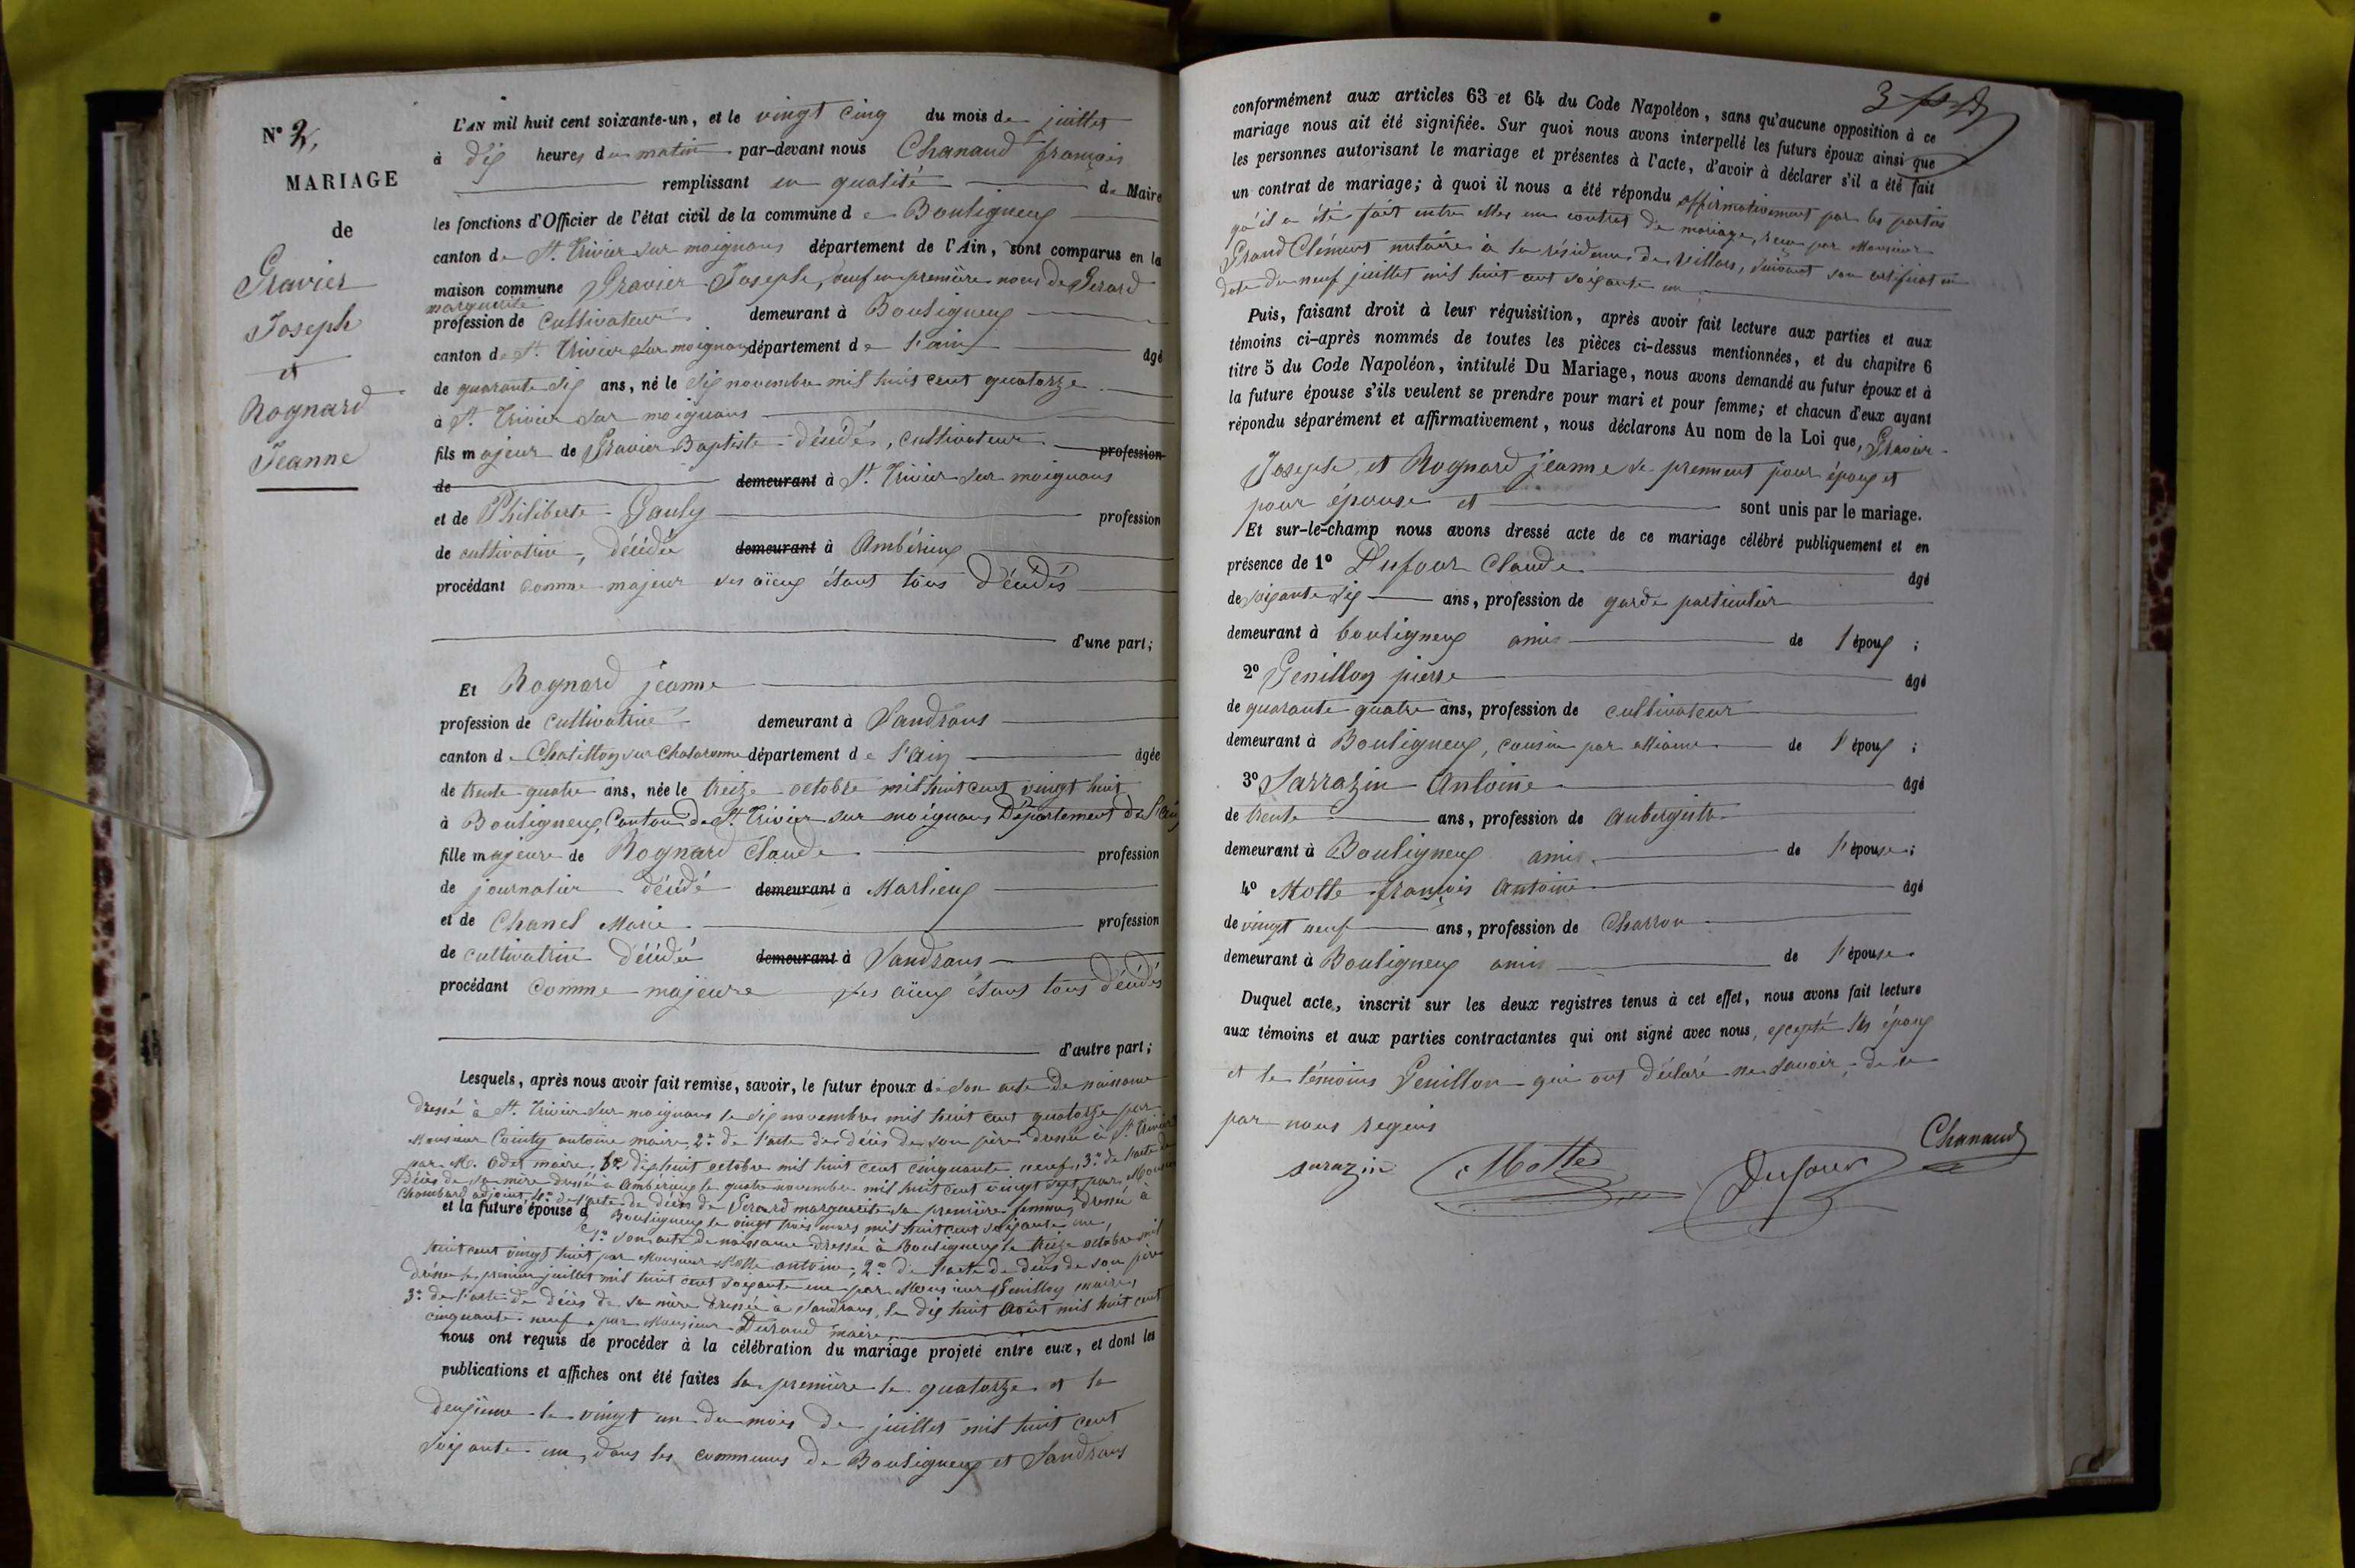 N° 2,
MARIAGE
de
Gravier
Joseph
et
Rognard
Jeanne
L'AN mil huit cent soixante-un, et le vingt cinq du mois de juillet
à dix heures du matin par-devant nous Chanaud françois
remplissant en qualité de Maire
les fonctions d'Officier de l'état civil de la commune de Bouligneux
canton de St. Trivier sur moignans département de l'Ain, sont comparus en la
maison commune Gravier Joseph, veuf en première noces de Gerard
marguerite
profession de cultivateur demeurant à Bouligneux
canton de St. Trivier sur moignans département de l'ain âgé
de quarante six ans, né le dix novembre mil huit cent quatorze
à St. Trivier sur moignans
fils majeur de Gravier Baptiste décédé, cultivateur profession
de demeurant à St. Trivier sur moignans
et de Philiberte Gauly profession
de cultivatrice, décédée demeurant à Ambérieux
procédant comme majeur ses aïeux étant tous décédés
d'une part;
Et Rognard jeanne
profession de cultivatrice demeurant à Sandrans
canton de Chatillon sur Chalaronne département de l'Ain âgée
de trente quatre ans, née le treize octobre mil huit cent vingt huit
à Bouligneux, Canton de St. Trivier sur moignans Département de l'Ain
fille majeure de Rognard Claude profession
de journalier décédé demeurant à Marlieux
et de Chanel Marie profession
de cultivatrice décédée demeurant à Sandrans
procédant comme majeure ses aïeux étant tous décédés
d'autre part;
Lesquels, après nous avoir fait remise, savoir, le futur époux de son acte de naissance
dressé à St. Trivier sur moignans le dix novembre mil huit cent quatorze par
Monsieur Cointy antoine maire, 2° de l'acte de décès de son père dressé à St. Trivier
par M. Odet maire, le dix huit octobre mil huit cent cinquante neuf, 3° de l'acte de
Décès de sa mère dressé à Ambérieux le quatre novembre mil huit cent vingt sept par Monsieur
Chambard adjoint, 4° de l'acte de décès de Gerard marguerite sa première femme, dressé à
et la future épouse d Bouligneux le vingt trois mars mil huit cent soixante un,
1° son acte de naissance dressée à Bouligneux le treize octobre mil
huit cent vingt huit par Monsieur Motte antoine, 2° de l'acte de décès de son père
dressé le premier juillet mil huit cent soixante une par Monsieur Genillon maire,
3° de l'acte de décès de sa mère dressée à Sandrans, le dix huit Août mil huit cent
cinquante neuf, par Monsieur Durand maire
nous ont requis de procéder à la célébration du mariage projeté entre eux, et dont les
publications et affiches ont été faites la première le quatorze et la
deuxième le vingt un du mois de juillet mil huit cent
soixante un, dans les communes de Bouligneux et Sandrans
conformément aux articles 63 et 64 du Code Napoléon, sans qu'aucune opposition à ce
mariage nous ait été signifiée. Sur quoi nous avons interpellé les futurs époux ainsi que
les personnes autorisant le mariage et présentes à l'acte, d'avoir à déclarer s'il a été fait
un contrat de mariage; à quoi il nous a été répondu affirmativement par les parties
qu'il a été fait entre elles un contrat de mariage, reçu par Monsieur
Grand Clément notaire à la résidence de Villars, suivant son certificat en
date du neuf juillet mil huit cent soixante un
Puis, faisant droit à leur réquisition, après avoir fait lecture aux parties et aux
témoins ci-après nommés de toutes les pièces ci-dessus mentionnées, et du chapitre 6
titre 5 du Code Napoléon, intitulé Du Mariage, nous avons demandé au futur époux et à
la future épouse s'ils veulent se prendre pour mari et pour femme; et chacun d'eux ayant
répondu séparément et affirmativement, nous déclarons Au nom de la Loi que, Gravier
Joseph, et Rognard jeanne se prennent pour époux et
pour épouse et sont unis par le mariage.
Et sur-le-champ nous avons dressé acte de ce mariage célébré publiquement et en
présence de 1° Dufour Claude âgé
de soixante dix ans, profession de garde particulier
demeurant à bouligneux amis de l'époux;
2° Genillon pierre âgé
de quarante quatre ans, profession de cultivateur
demeurant à Bouligneux, cousin par alliance de l'époux;
3° Sarrazin Antoine âgé
de trente ans, profession de Aubergiste
demeurant à Bouligneux amis de l'épouse;
4° Motte françois Antoine âgé
de vingt neuf ans, profession de Charron
demeurant à Bouligneux amis de l'épouse
Duquel acte, inscrit sur les deux registres tenus à cet effet, nous avons fait lecture
aux témoins et aux parties contractantes qui ont signé avec nous, excepté les époux
et le témoins Genillon qui ont déclaré ne savoir, de ce
par nous requis
Chanaud
sarazin Motte Dufour